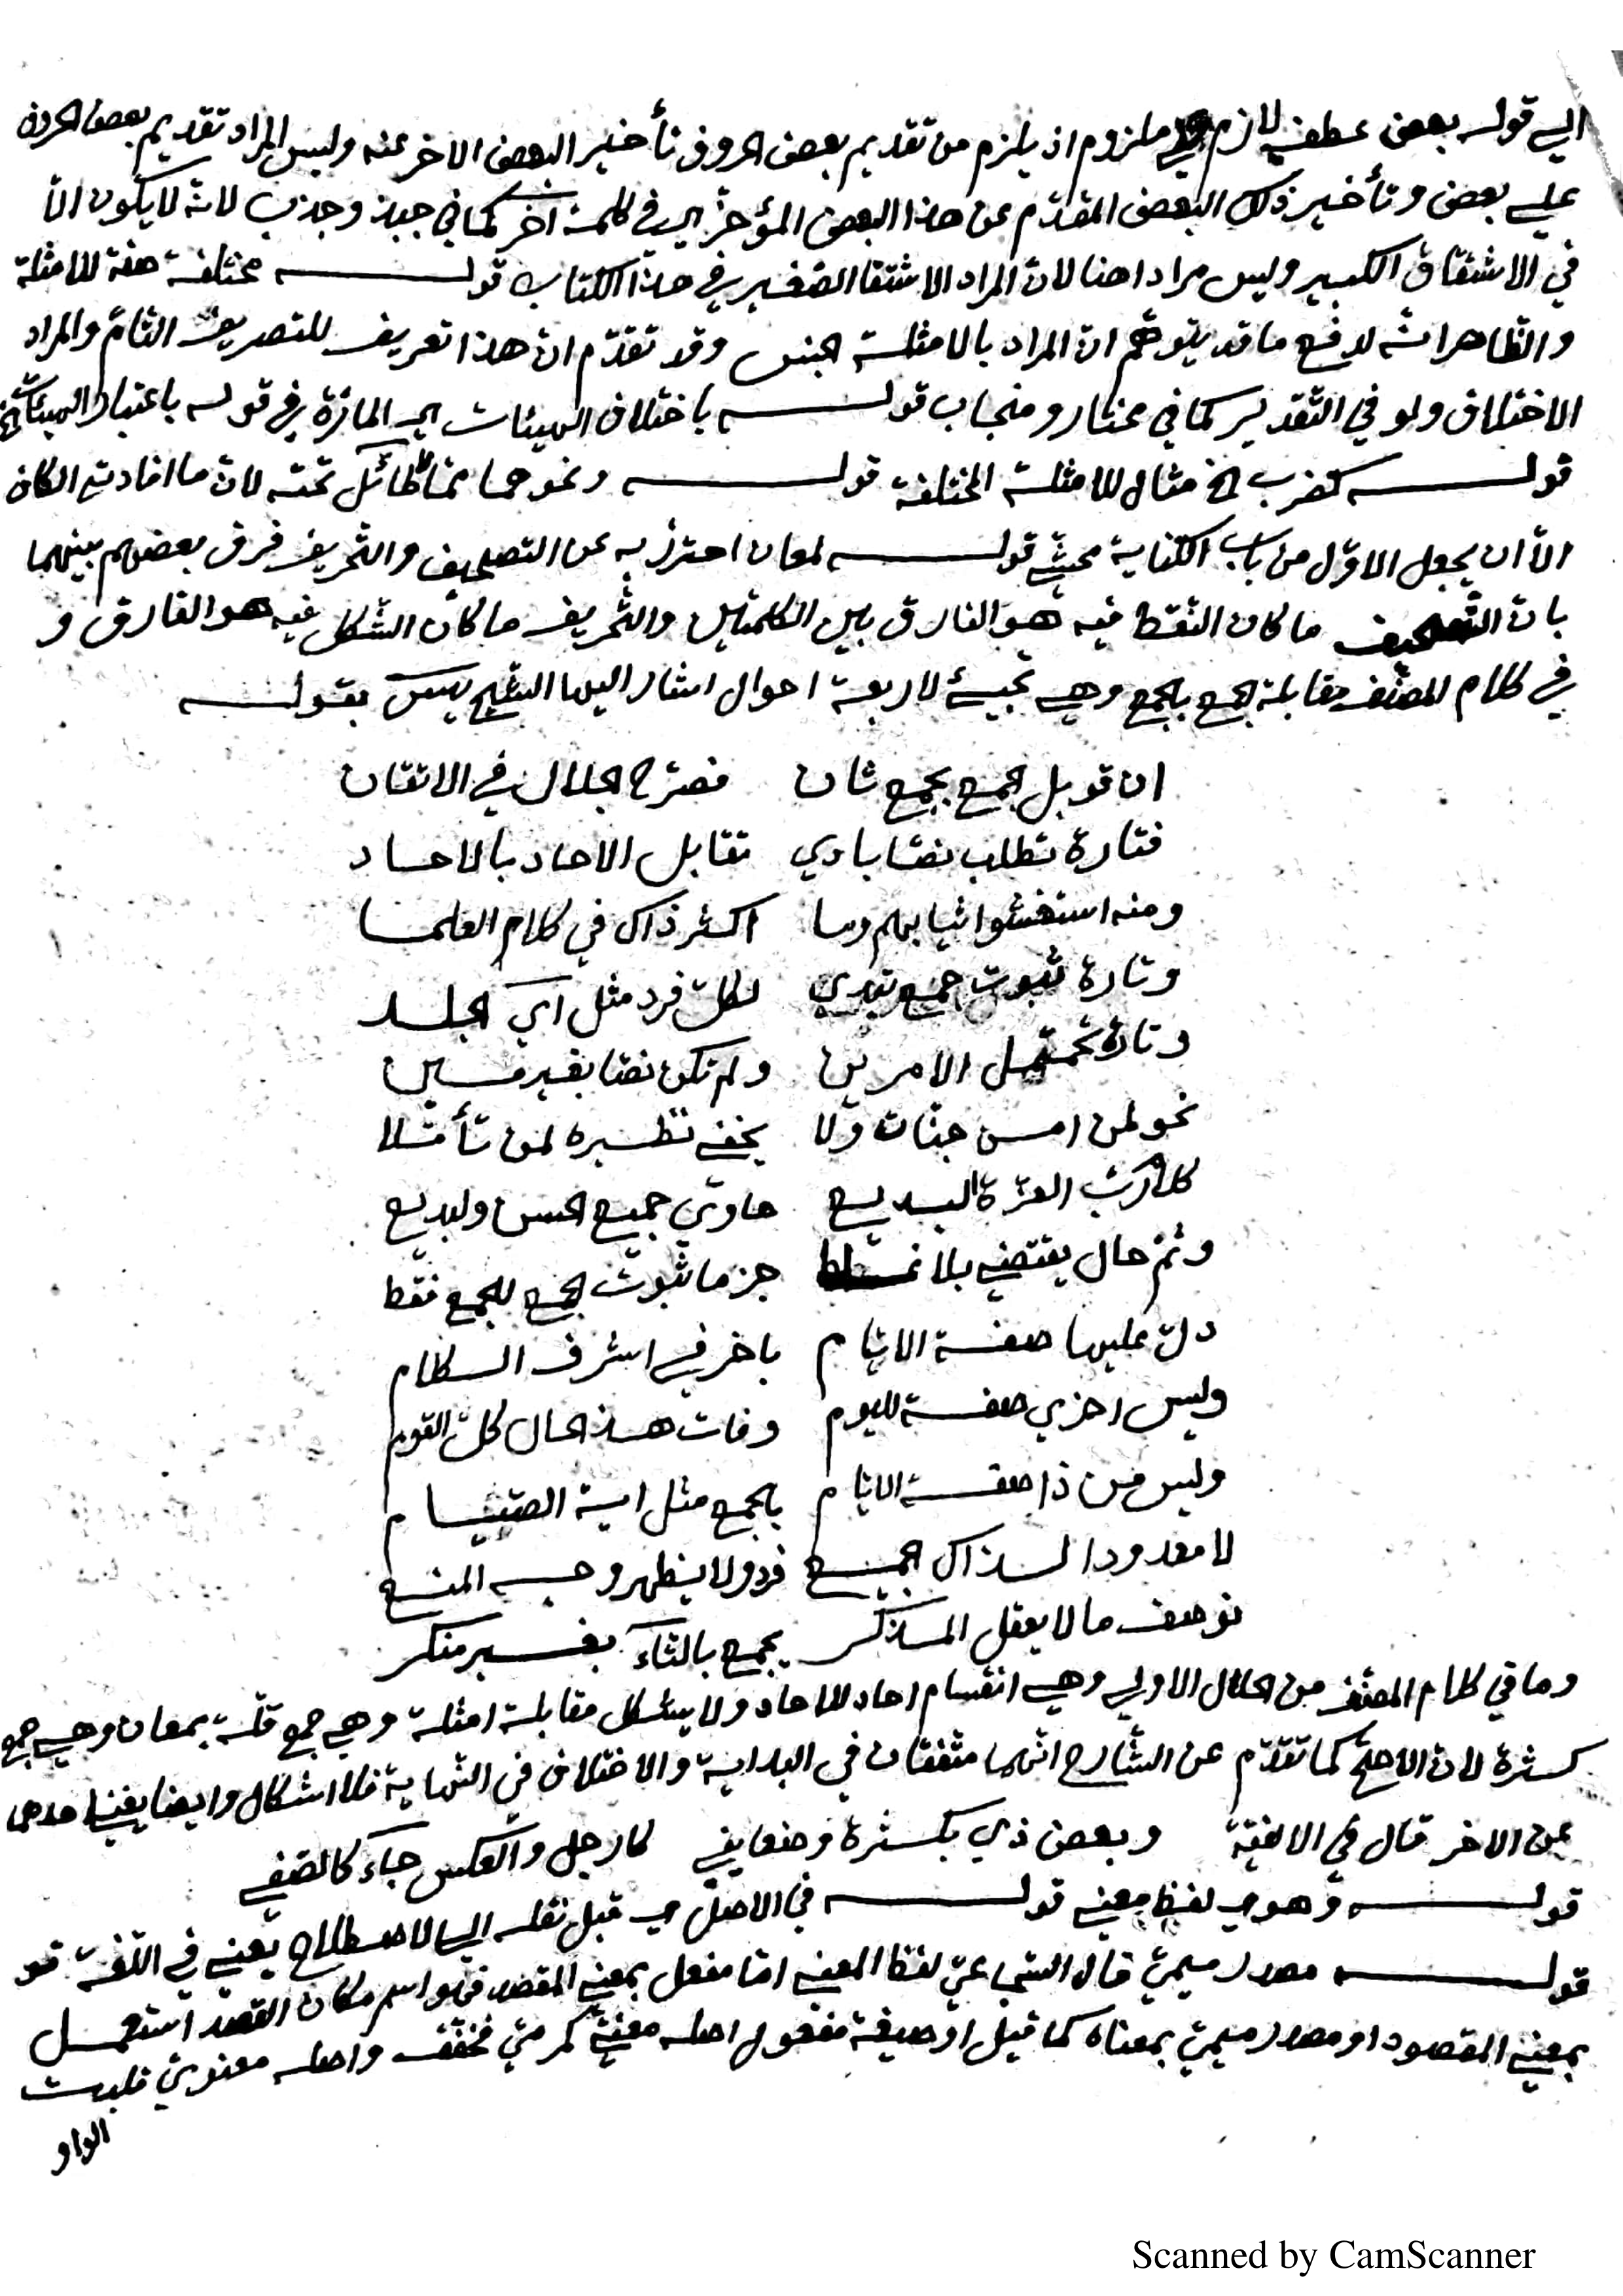 الى قوله بعض عطفه لازم على ملزوم اذ يلزم من تقديم بعض الحروف تأخير البعض الاخر عنه وليس المراد تقديم بعض الحروف
على بعض وتأخير ذلك البعض المقدّم عن هذا البعض المؤخر اي في كلمة اخر كما في جبذ وجذب لانه لا يكون الّا
في الاشتقاق الكبير وليس مرادا هنا لان المراد الاشتقا الصّغير في هذا الكتاب قوله مختلفة صفة للامثلة
والظاهر انه لدفع ما قد يتوهّم ان المراد بالامثلة الجنس وقد تقدّم انّ هذا تعريف للتصريف التامّ والمراد
الاختلاف ولو في التقدير كما في مختار ومنجاب قوله باختلاف الهيئات اي المارّة في قوله باعتبار الهيئات الخ
قوله كضرب الخ مثال للامثلة المختلفة قوله ونحوهما ممّا لا طائل تحته لانّ ما افادته الكاف
الّا ان يجعل الاوّل من باب الكناية محشّي قوله لمعان احترز به عن التصحيف والتحريف فرق بعضهم بينهما
بانّ التصحيف ما كان النّقط فيه هو الفارق بين الكلمتين والتّحريف ما كان الشّكل فيه هو الفارق و
في كلام المصنّف مقابلة الجمع بالجمع وهي تجيئ لاربعة احوال اشار اليها الشيخ يس بقوله
ان قوبل الجمع بجمع ثان فصرّح الجلال في الاتقان
فتارة تطلب نصّا بادي تقابل الاحاد بالاحاد
ومنه استغشوا ثيابهم وما اكثر ذاك في كلام العلما
وتارة ثبوت جمع تبدي لكلّ فرد مثل آي الجلد
وتارة تحتمل الامرين ولم تكن نصّا بغير مين
نحو لمن امن جنّات ولا يخفى نظيره لمن تأمّلا
كلا رتب الغرّة البديع حاوي جميع الحسن والبديع
وثمّ حال يقتضي بلا غلط جزما ثبوت الجمع للجمع فقط
دلّ عليها صفة الايّام باخر في اشرف الكلام
وليس اخرى صفة لليوم وفات هذ الحال كلّ القوم
وليس من ذا صفة الايّام بالجمع مثل اية الصّيام
لا معدودا لذاك الجمع فرد ولا يظهر وجه المنع
فوصف ما لا يعقل المذكر بجمع بالتاء بغير منكر
وما في كلام المصنّف من الحال الاولى وهي انقسام احاد للاحاد ولا يشكل مقابلة امثلة وهي جمع قلّة بمعان وهي جمع
كثرة لانّ الاصحّ كما تقدّم عن الشّارح انّهما متّفقان في البداية والاختلاف في النّهاية فلا اشكال وايضا يغني احدهما
عن الاخر قال في الالفيّة وبعض ذي بكثرة وضعا يفي كارجل والعكس جاء كالصّفي
قوله وهو اي لفظ معنى قوله في الاصل اي قبل نقله الى الاصطلاح يعني في اللّغة قو
قوله مصدر ميميّ قال الشجاعيّ لفظ المعنى امّا مفعل بمعنى المقصد فهو اسم مكان القصد استعمل
بمعنى المقصود او مصدر ميميّ بمعناه كما قيل او صيغة مفعول اصله معنيّ كمرميّ مخفّف واصله معنويّ قلبت
الواو
Scanned by CamScanner